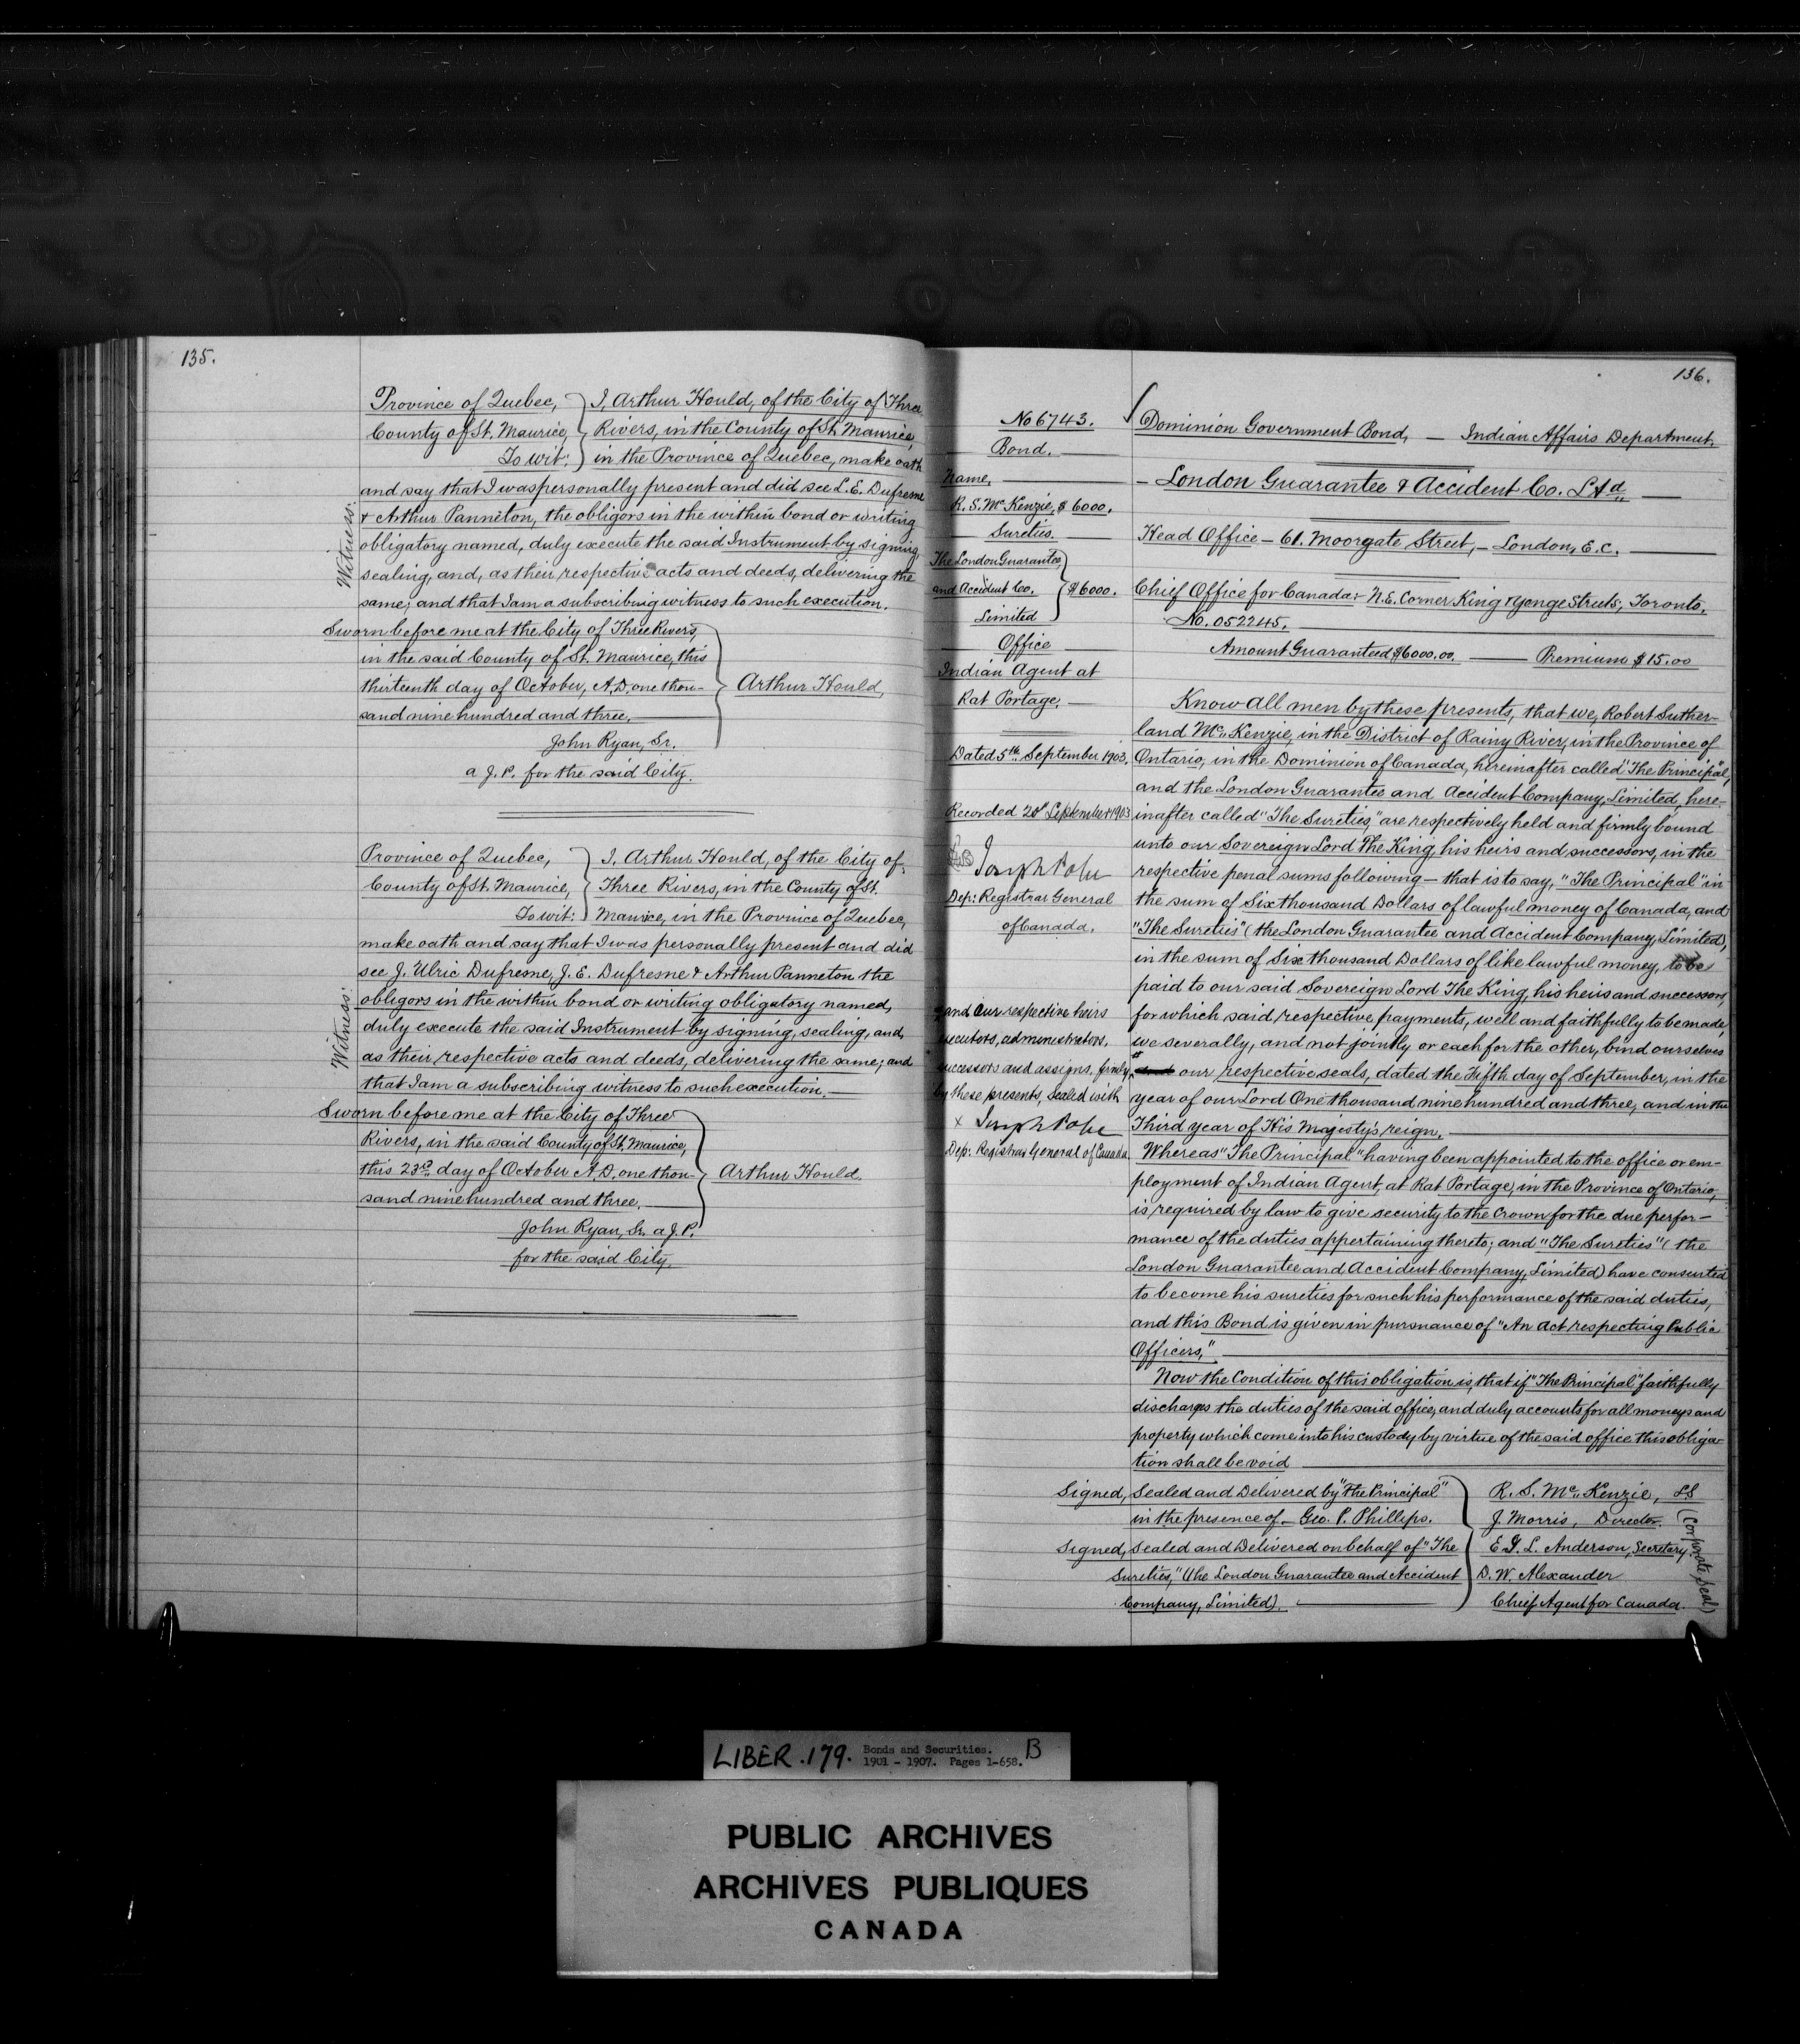 135.
Province of Quebec,
County of St. Maurice,
To wit:
I, Arthur Hould, of the City of Three
Rivers, in the County of St. Maurice,
in the Province of Quebec, make oath
and say that I was personally present and did see L. E. Dufresne
& Arthur Panneton, the obligors in the within bond or writing
obligatory named, duly execute the said Instrument by signing,
sealing, and, as their respective acts and deeds, delivering the
same; and that I am a subscribing witness to such execution.
Witness:
Sworn before me at the City of Three Rivers,
in the said County of St. Maurice, this
thirteenth day of October, A.D. one thou-
sand nine hundred and three.
Arthur Hould,
John Ryan, Sr.
a J. P. for the said City.
Province of Quebec,
County of St. Maurice,
To wit:
I, Arthur Hould, of the City of
Three Rivers, in the County of St.
Maurice, in the Province of Quebec,
make oath and say that I was personally present and did
see J. Ulric Dufresne, J. E. Dufresne & Arthur Panneton the
obligors in the within bond or writing obligatory named,
duly execute the said Instrument by signing, sealing, and,
as their respective acts and deeds, delivering the same; and
that I am a subscribing witness to such execution.
Witness:
Sworn before me at the City of Three
Rivers, in the said County of St. Maurice,
this 23rd day of October A.D. one thou-
sand nine hundred and three.
Arthur Hould.
John Ryan, Sr. a J. P.
for the said City.
136.
No 6743.
Bond.
Name,
R. S. McKenzie, $6000.
Sureties.
The London Guarantee
and Accident Co.
Limited
$6000.
Office
Indian Agent at
Rat Portage.
Dated 5th September 1903.
Recorded September 1903
Joseph Pope
Dep: Registrar General
of Canada.
and our respective heirs
executors, administrators,
successors and assigns, firmly
by these presents, sealed with
x Joseph Pope
Dep: Registrar General of Canada
Dominion Government Bond, — Indian Affairs Department
- London Guarantee & Accident Co. Ltd
Head Office - 61. Moorgate Street, - London, E.C.
Chief Office for Canada:- N.E. Corner King & Yonge Streets, Toronto.
No. 052245.
Amount Guaranteed $6000.00. — Premium $15.00
Know all men by these presents, that we, Robert Suther-
land McKenzie, in the District of Rainy River, in the Province of
Ontario, in the Dominion of Canada, hereinafter called "The Principal,"
and the London Guarantee and Accident Company, Limited, here-
inafter called "The Sureties," are respectively held and firmly bound
unto our Sovereign Lord The King, his heirs and successors, in the
respective penal sums following — that is to say, "The Principal" in
the sum of Six thousand Dollars of lawful money of Canada, and
"The Sureties" (the London Guarantee and Accident Company, Limited),
in the sum of Six thousand Dollars of like lawful money, to be
paid to our said Sovereign Lord The King, his heirs and successors,
for which said respective payments, well and faithfully to be made,
we severally, and not jointly or each for the other, bind ourselves
our respective seals, dated the Fifth day of September, in the
year of our Lord One thousand nine hundred and three, and in the
Third year of His Majesty's reign.
Whereas "The Principal" having been appointed to the office or em-
ployment of Indian Agent, at Rat Portage, in the Province of Ontario,
is required by law to give security to the Crown for the due perfor-
mance of the duties appertaining thereto; and "The Sureties" (the
London Guarantee and Accident Company, Limited) have consented
to become his sureties for such his performance of the said duties,
and this Bond is given in pursuance of "An act respecting Public
Officers,"
Now the Condition of this obligation is, that if "The Principal" faithfully
discharges the duties of the said office, and duly accounts for all moneys and
property which come into his custody by virtue of the said office this obliga-
tion shall be void
Signed, Sealed and Delivered by "The Principal"
in the presence of - Geo. P. Phillips.
Signed, Sealed and Delivered on behalf of "The
Sureties," (the London Guarantee and Accident
Company, Limited).
R. S. McKenzie, LS
J. Morris, Director.
E. G. L. Anderson, Secretary.
D. W. Alexander
Chief Agent for Canada.
(Corporate Seal)
LIBER .179. Bonds and Securities. B
1901 - 1907. Pages 1-658.
PUBLIC ARCHIVES
ARCHIVES PUBLIQUES
CANADA